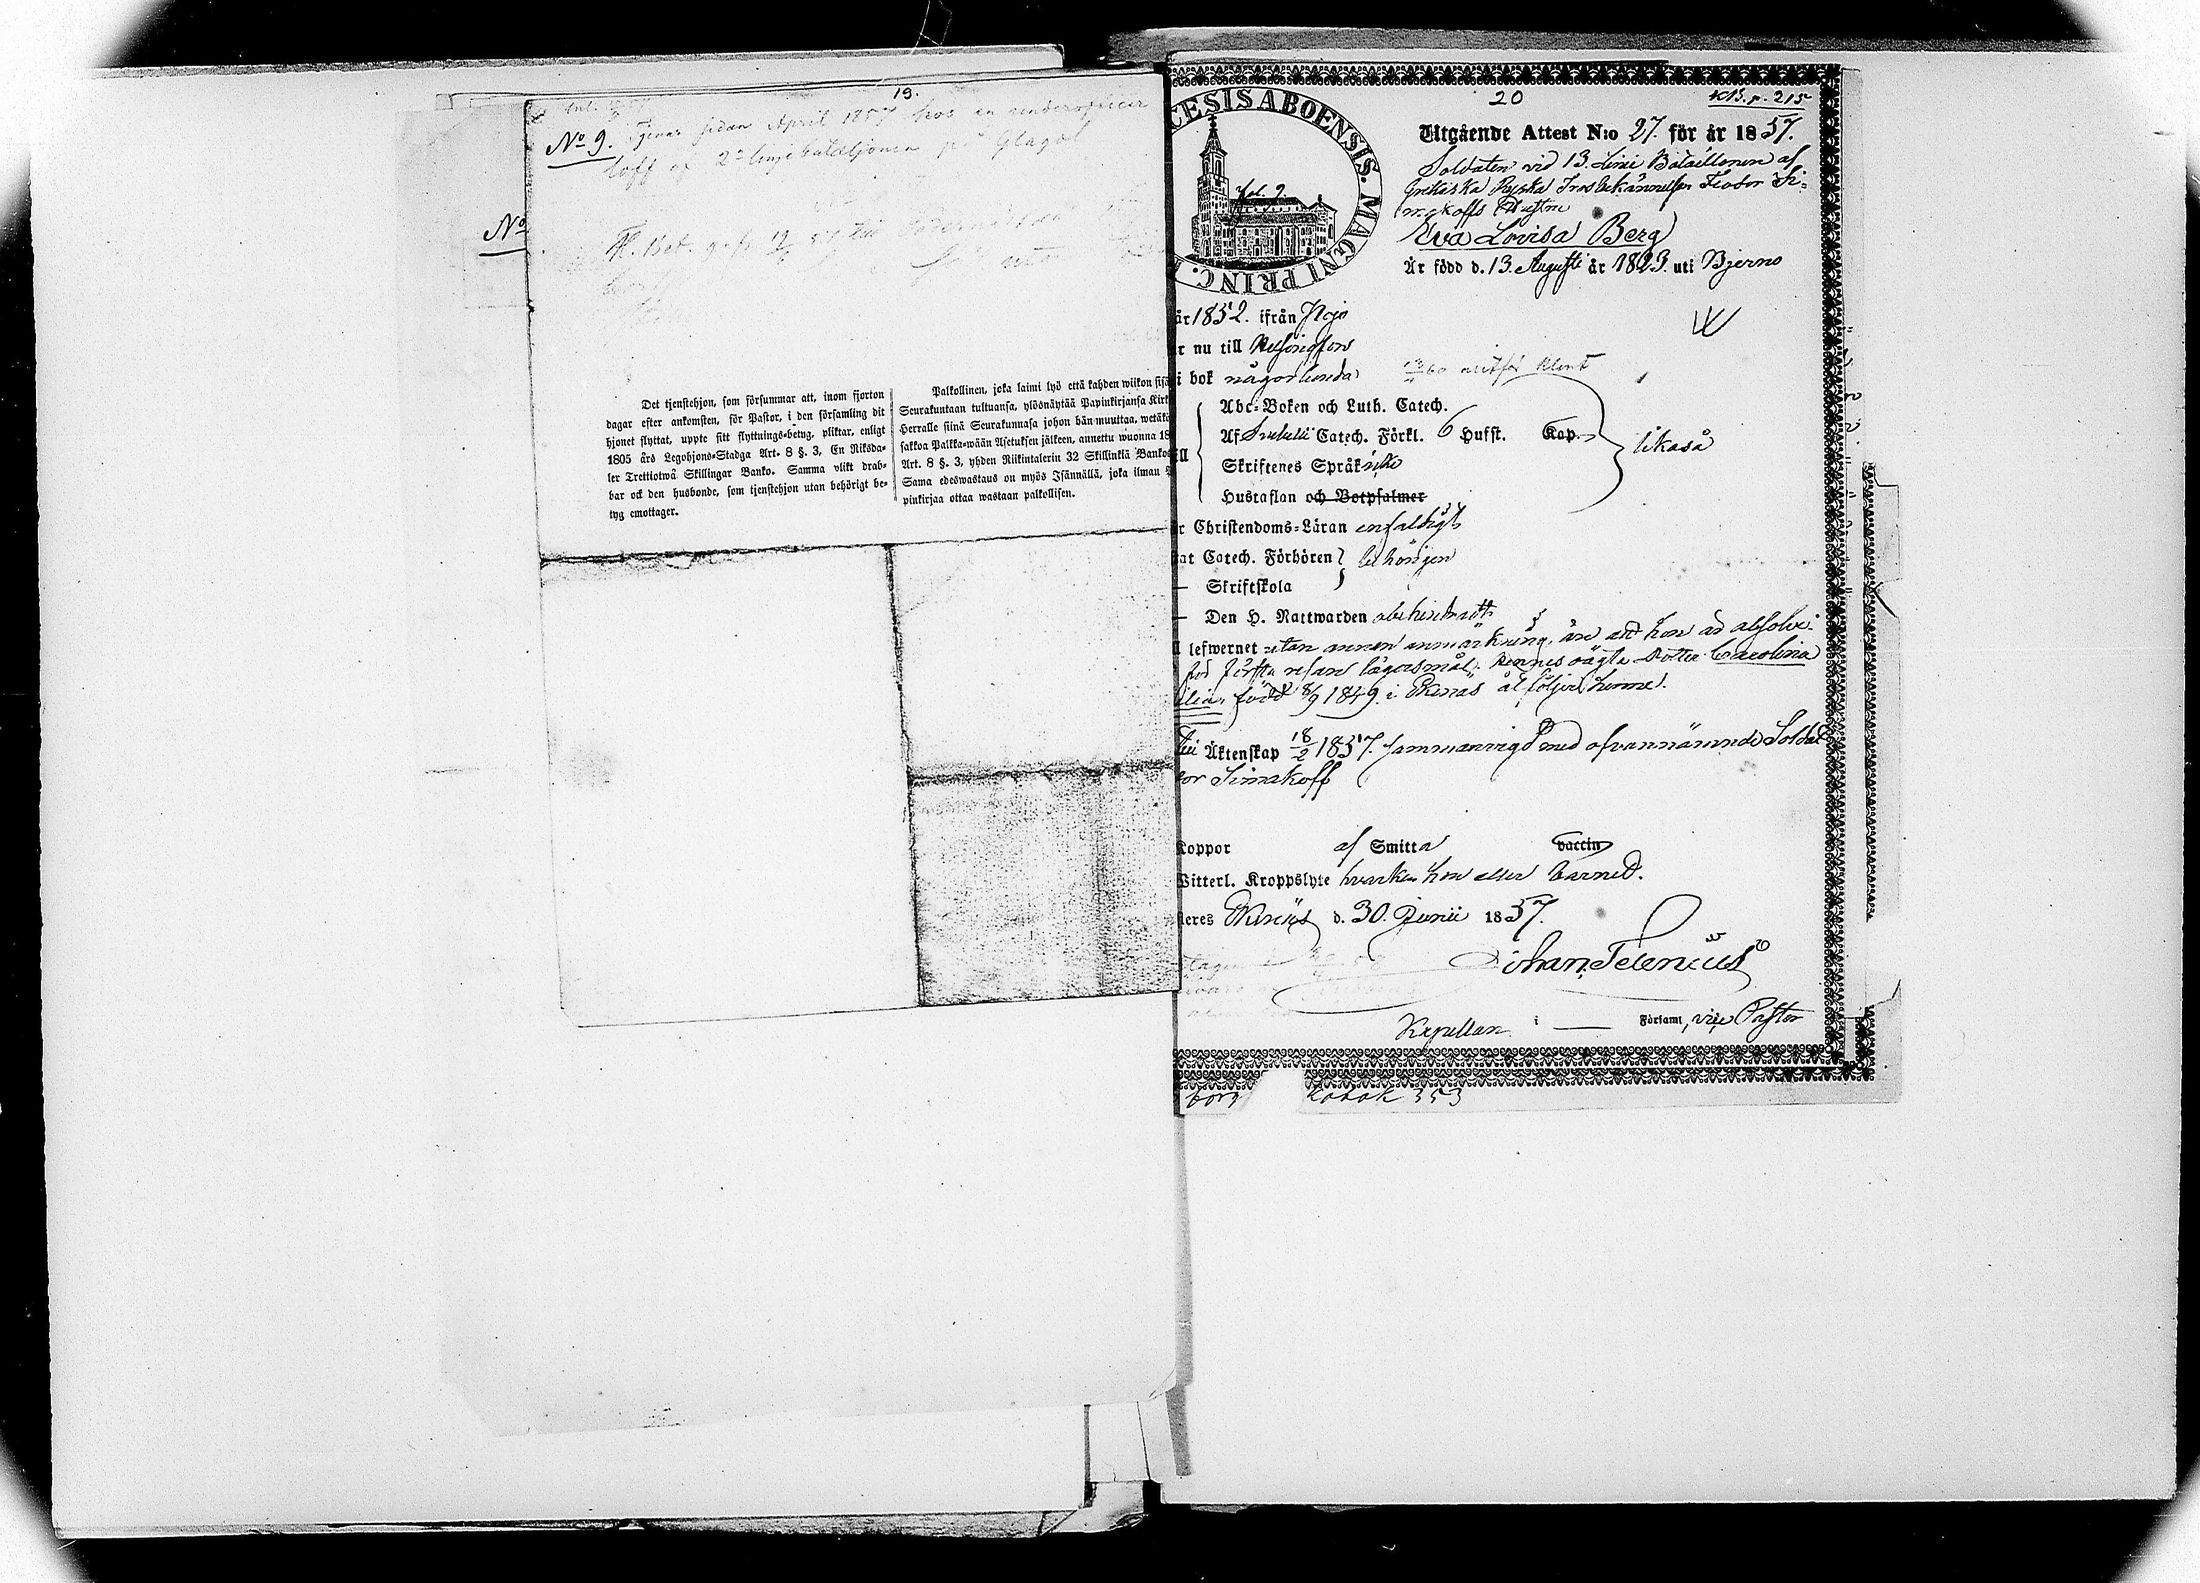 19.
No 9. Tjenar sedan April 1857 hos en underofficer
loff af 2a linjebataljonen på
No
Det tjenstehjon, som försummar att, inom fjorton
dagar efter ankomsten, för Pastor, i den församling dit
hjonet flyttat, uppte sitt flyttnings-betyg, pliktar, enligt
1805 års Legohjons-Stadga Art. 8 §. 3, En Riksda-
ler Trettiotwå Skillingar Banko. Samma vlikt drab-
bar och den husbonde, som tjenstehjon utan behörigt be-
tyg emottager.
Palkollinen, joka laimi lyö että kahden wiikon sisä
Seurakuntaan tultuansa, ylösnäytää Papinkirjansa Kirk
Herralle siinä Seurakunnasa johon hän muuttaa, wetäkö
sakkoa Palkka-wään Asetuksen jälkeen, annettu wuonna 18
Art. 8 §. 3, yhden Riikintalerin 32 Skillinkiä Banko
Sama edeswastaus on myös Isännällä, joka ilman
pinkirjaa ottaa wastaan palkollisen.
20
KB. p. 215
CESIS ABOENSIS. MAGNI PRINC.
Fol. 9.
Utgående Attest N:o 27. för år 1857.
Soldaten vid 13. Linie Bataillonen af
Grekiska Ryska Trosbekännelsen Feodor Si-
makoffs Hustru
Eva Lovisa Berg
Är född d. 13. Augusti år 1823. uti Bjerno
är 1852. ifrån Pojo
r nu till Helsingfors
i bok någorlunda
Abc-Boken och Luth. Catech.
Af Svebelii Catech. Förkl. 6 Hufst. Kap.
likaså
Skriftenes Språk icke
Hustaflan och Botpsalmer
r Christendoms-Läran enfaldigt
at Catech. Förhören behörigen
Skriftskola
Den H. Nattwarden obehindradt
lefwernet utan annan anmärkning, än att hon ad absolv.
för första resan lägersmål. Hennes oägta dotter Carolina
ilia, född 8/9 1849. i Ekenäs åtföljer henne.
Äktenskap 18/2 1857. sammanvigd med ofvannämnde Soldat
or Simakoff
Koppor af Smitta vaccin
Witterl. Kroppslyte hvarken hon eller barnet.
eres Ekenäs d. 30. Junii 1857.
Johan Telenius
Kapellan i Församl, vice Pastor
borg Kasak 353